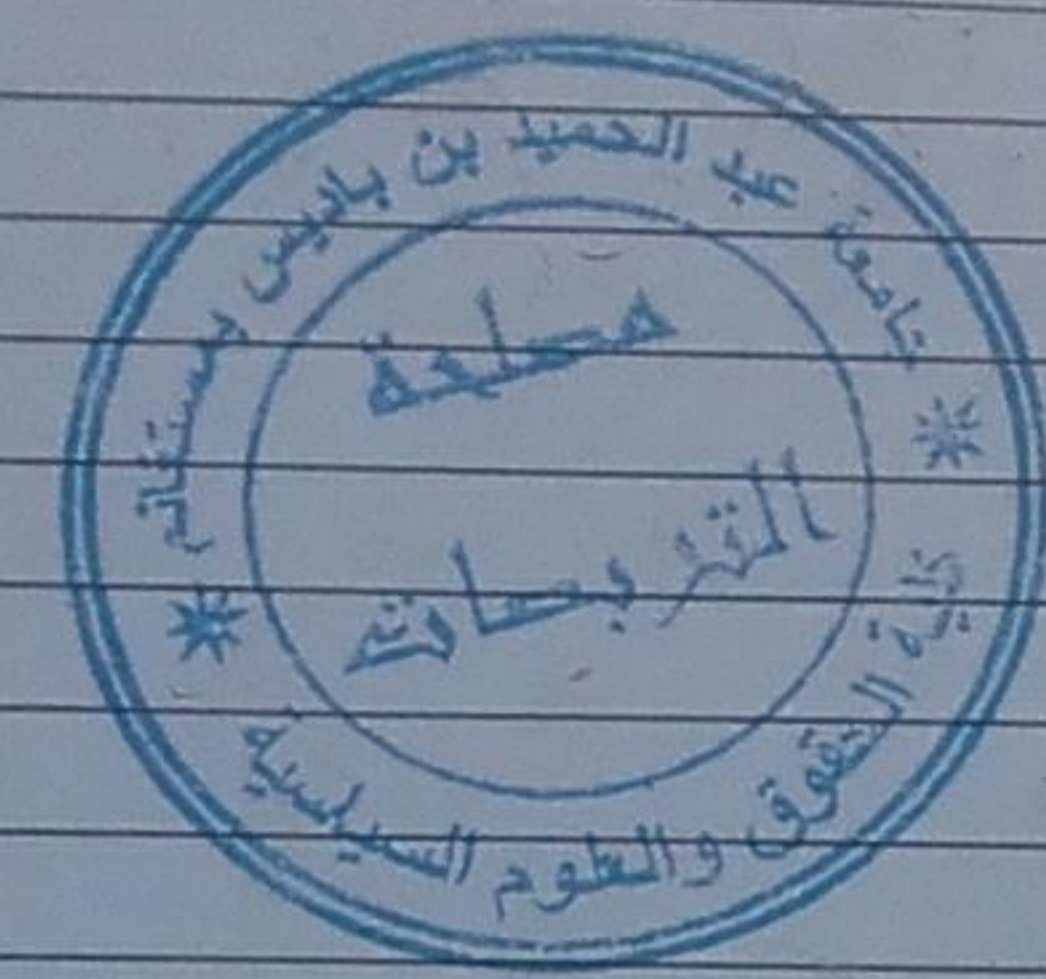 جامعة عبد الحميد بن باديس بمستغانم
مصلحة
التربصات
كلية الحقوق والعلوم السياسية